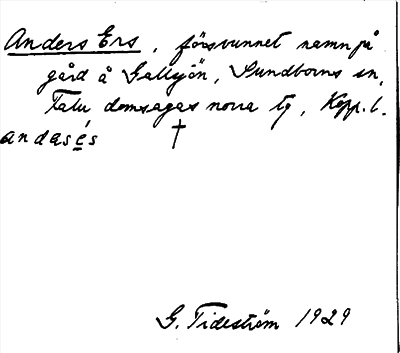 Anders Ers, försvunnet namn på
gård å Gallsjön, Sundborns sn,
Falu domsagas norra tg, Kopp. l.
andasés †
G. Tideström 1929